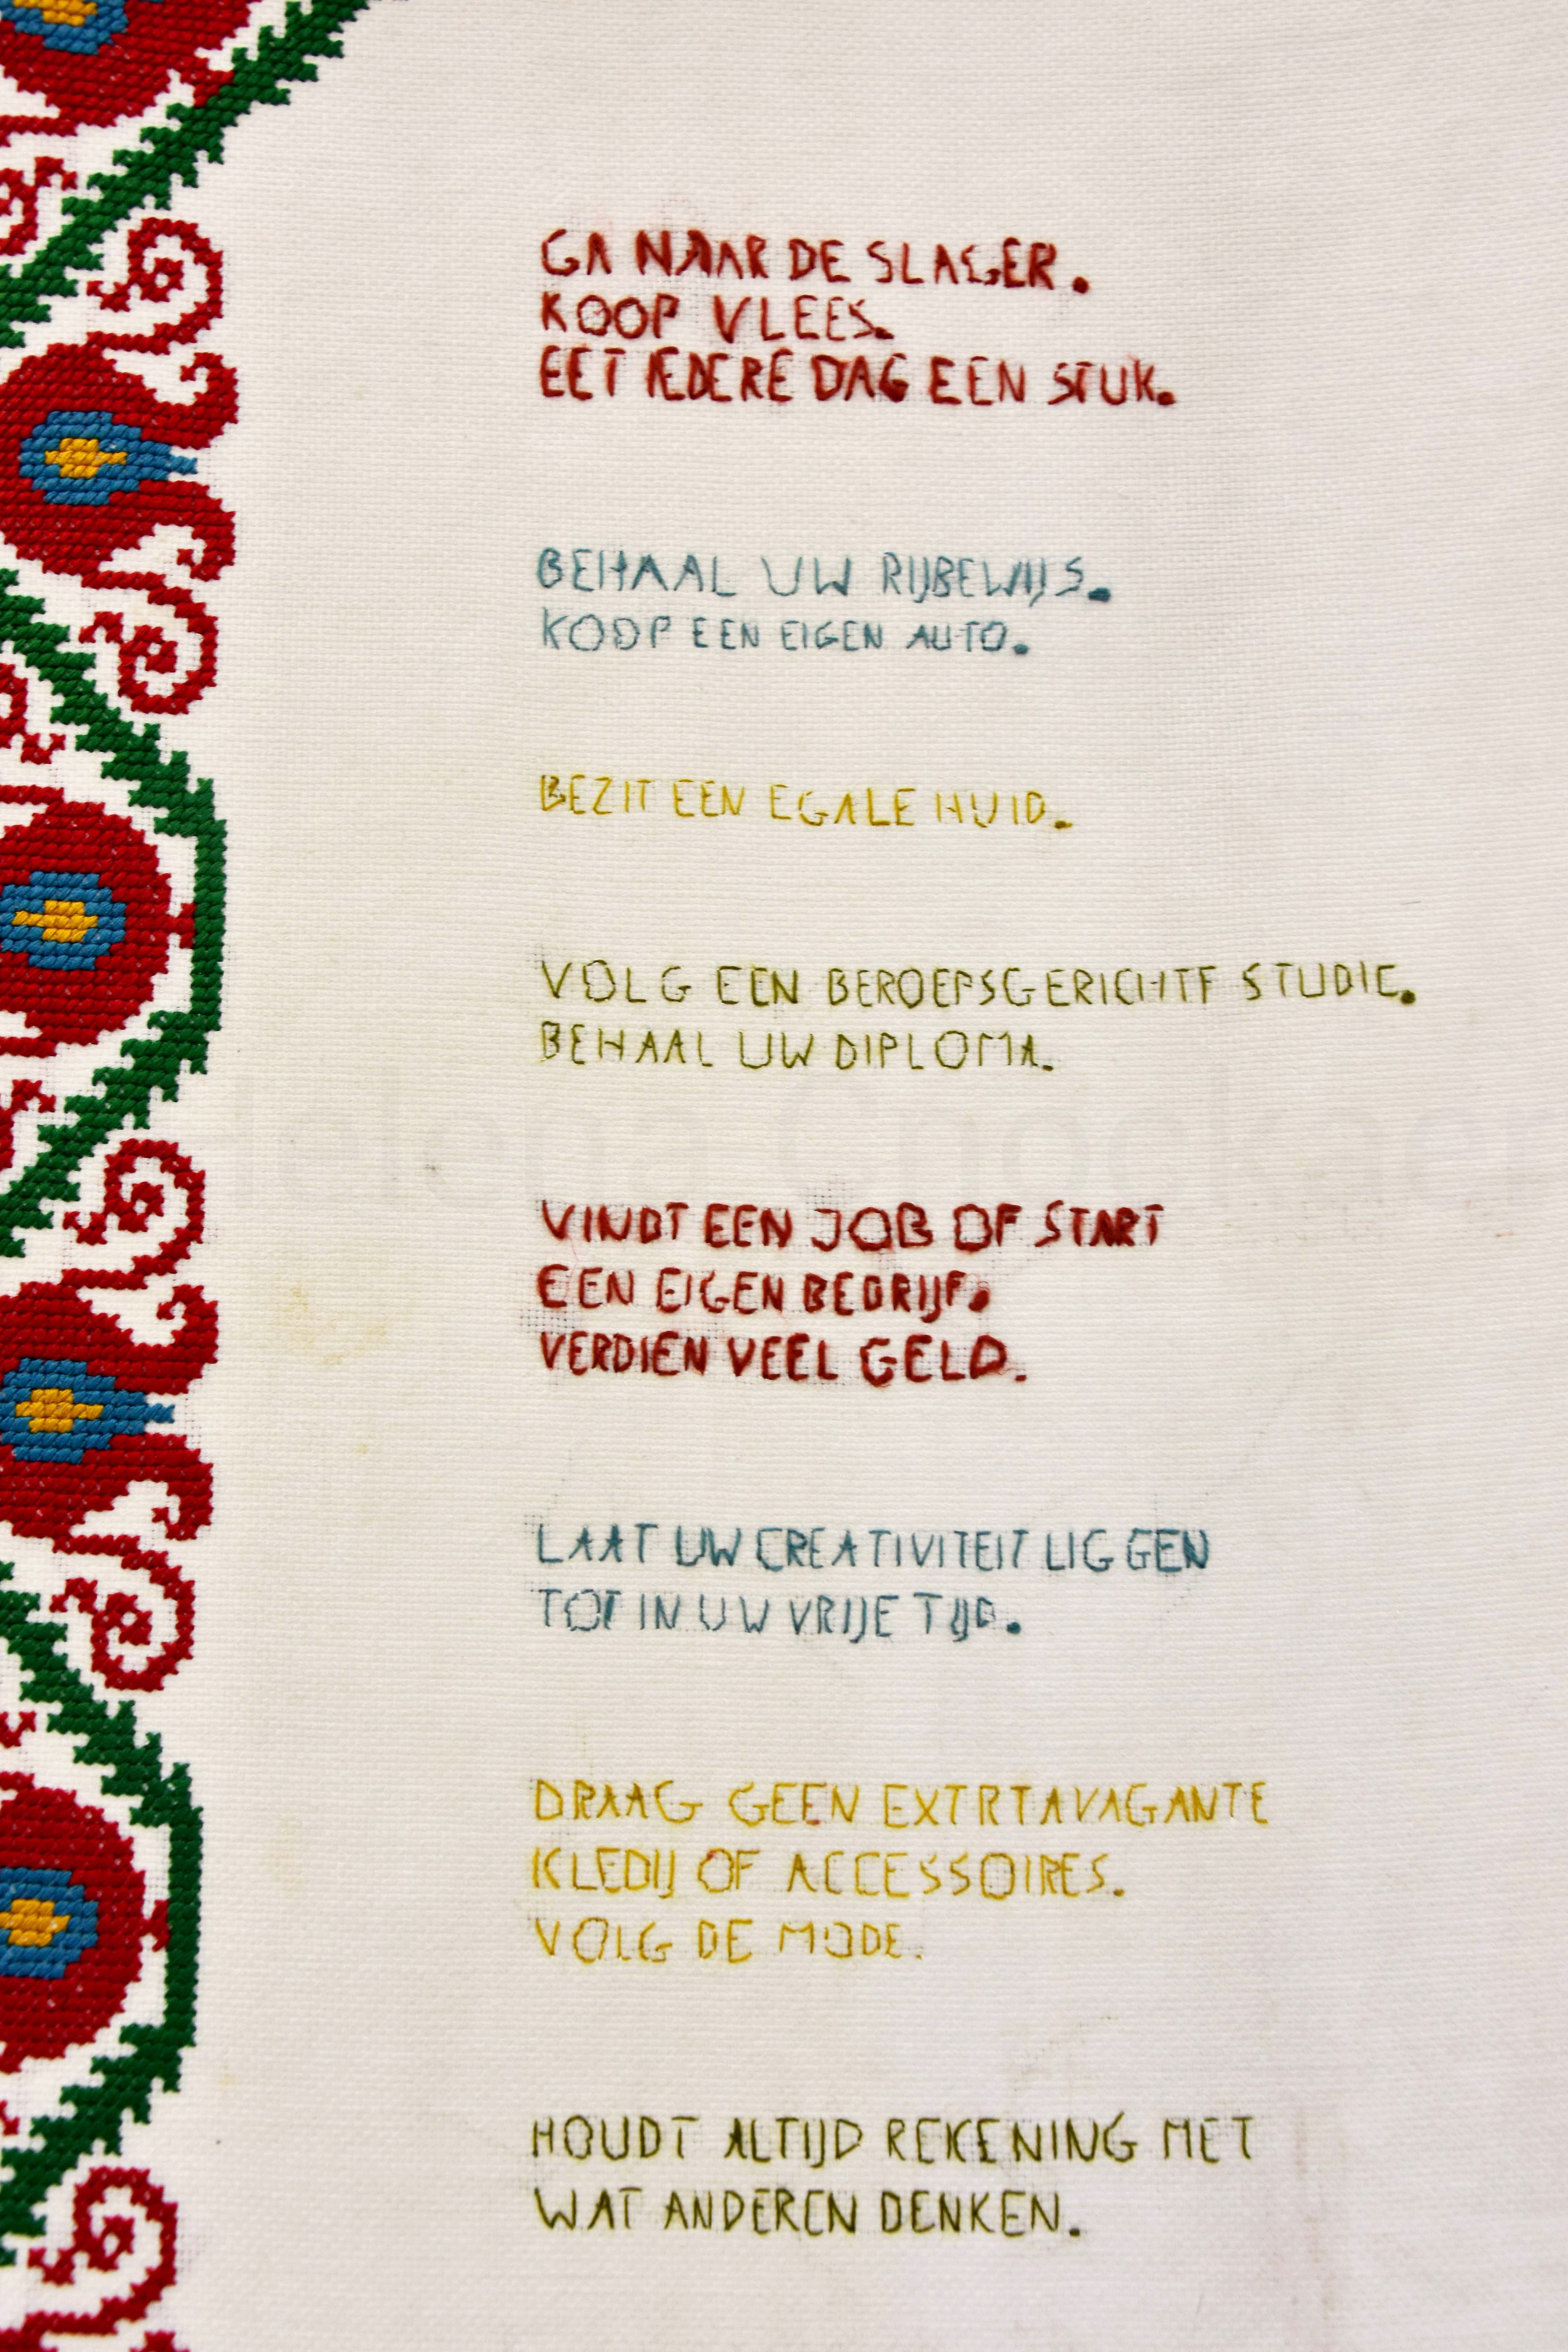 GA NAAR DE SLAGER.
KOOP VLEES.
EET IEDERE DAG EEN STUK.
BEHAAL UW RIJBEWIJS.
KOOP EEN EIGEN AUTO.
BEZIT EEN EGALE HUID.
VOLG EEN BEROEPSGERICHTE STUDIE.
BEHAAL UW DIPLOMA.
VINDT EEN JOB OF START
EEN EIGEN BEDRIJF.
VERDIEN VEEL GELD.
LAAT UW CREATIVITEIT LIGGEN
TOT IN UW VRIJE TIJD.
DRAAG GEEN EXTRTAVAGANTE
KLEDIJ OF ACCESSOIRES.
VOLG DE MODE.
HOUDT ALTIJD REKENING MET
WAT ANDEREN DENKEN.